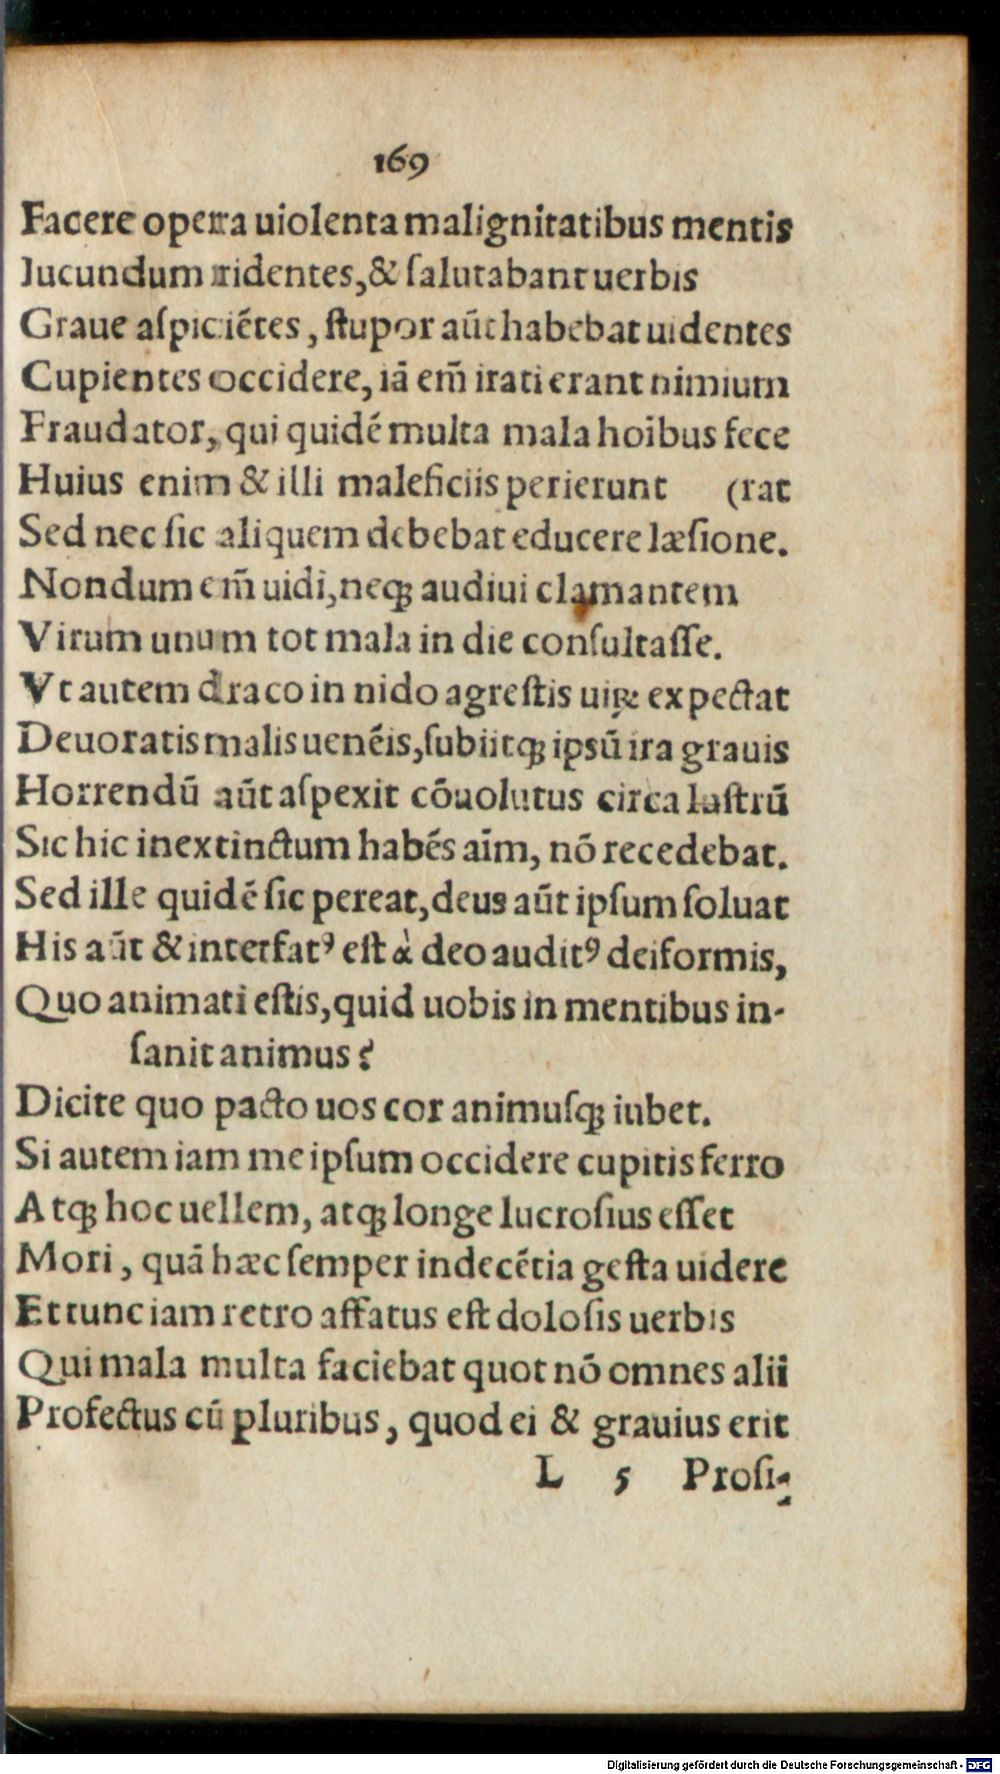 169
Facere opera uiolenta malignitatibus mentis
Iucundum ridentes,& ſalutabant uerbis
Graue aſpiciẽtes , ſtupor aũt habebat uidentes
Cupientes occidere, iã em̃ irati erant nimium
Fraudator, qui quidẽ multa mala hoĩbus fece
Huius enim & illi maleficiis perierunt (rat
Sed nec ſic aliquem debebat educere læſione.
Nondum em̃ uidi,neqꝫ audiui clamantem
Virum unum tot mala in die conſultaſſe.
Vt autem draco in nido agreſtis expectat
Deuoratis malis uenẽis,ſubiitqꝫ ipsũ ira grauis
Horrendũ aũt aſpexit cõuolutus circa luſtrũ
Sic hic inextinctum habẽs aĩm, nõ recedebat.
Sed ille quidẽ ſic pereat,deus aũt ipſum ſoluat
His aũt & interfatꝰ eſt à deo auditꝰ deiformis,
Quo animati eſtis,quid uobis in mentibus in-
ſanit animus?
Dicite quo pacto uos cor animuſqꝫ iubet.
Si autem iam me ipſum occidere cupitis ferro
Atqꝫ hoc uellem, atqꝫ longe lucroſius eſſet
Mori , quã hæc ſemper indecẽtia geſta uidere
Et tunc iam retro affatus eſt doloſis uerbis
Qui mala multa faciebat quot nõ omnes alii
Profectus cũ pluribus , quod ei & grauius erit
L 5 Proſi-
Digitalisierung gefördert durch die Deutsche Forschungsgemeinschaft - DFG